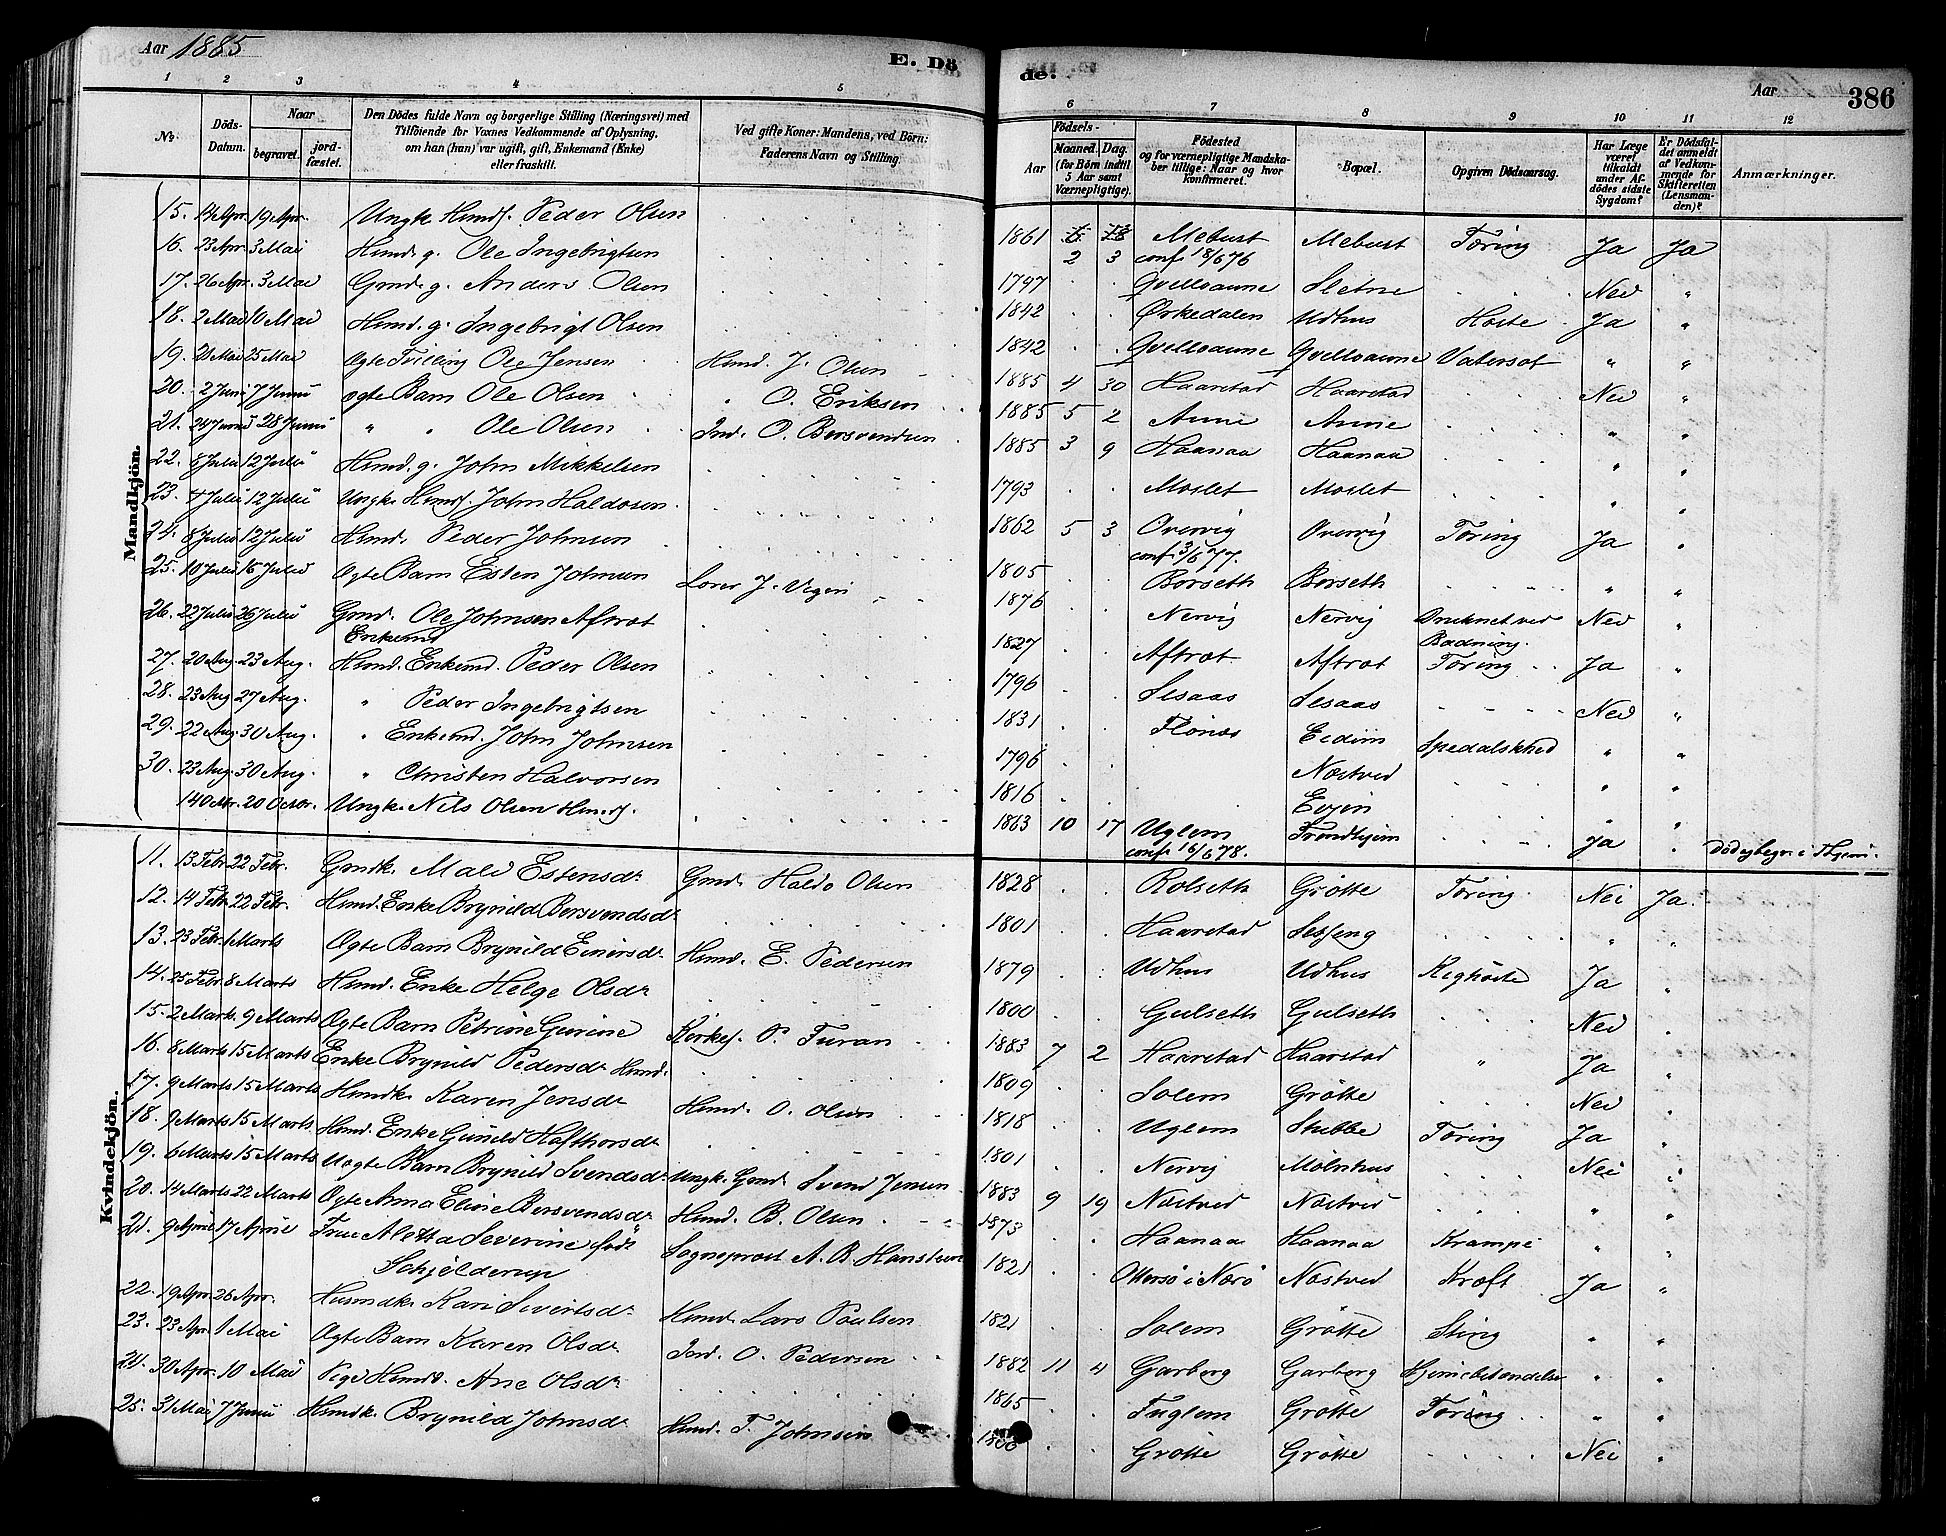 Aar 1885
E. Dö
de.
Aar
386
1 2 3 4 5 6 7 8 9 10 11 12
No.
Döds-Datum.
Naar
begravet.
jordfæstet.
Den Dödes fulde Navn og borgerlige Stilling (Næringsvei) med Tilföiende for Voxnes Vedkommende af Oplysning, om han (hun) var ugift, gift, Enkemand (Enke) eller fraskilt.
Ved gifte Koner: Mandens, ved Börn: Faderens Navn og Stilling.
Födsels-
Aar
Maaned. Dag.
(for Börn indtil 5 Aar samt Værnepligtige).
Födested
og for værnepligtige Mandskaber tillige: Naar og hvor konfirmeret.
Bopæl.
Opgiven Dödsaarsag.
Har Læge været tilkaldt under Afdödes sidste Sygdom?
Er Dödsfaldet anmeldt af Vedkommende for Skifteretten (Lensmanden)?
Anmærkninger.
Mandkjön.
15. 14 Apr. 19 Apr. Ungk. Husmds. Peder Olsen 1861 2 3 Mebust conf. 18/6 76 Mebust Tæring Ja Ja
16. 23 Apr. 3 Mai Husmd. g. Ole Ingebrigtsen 1797 Qvelloaune Sletne Nei "
17. 26 Apr. 3 Mai Grmd. g. Anders Olsen 1842 Ørkedalen Udhus Hoste Ja "
18. 2 Mai 10 Mai Husmd. g. Ingebrigt Olsen 1842 Qvelloaune Qvelloaune Vatersot " "
19. 21 Mai 25 Mai Ægte Tvilling Ole Jensen Husmd. J. Olsen 1885 4 30 Haarstad Haarstad Nei "
20. 2 Juni 7 Juni Ægte Barn Ole Olsen " O. Eriksen 1885 5 2 Aune Aune " "
21. 24 Juni 28 Juni " " Ole Olsen Ind. O. Bersvendsen 1885 3 9 Haanaa Haanaa " "
22. 8 Juli 12 Juli Husmd. g. John Mikkelsen 1793 Moslet Moslet " "
23. 4 Juli 12 Juli Ungk. Husmds. John Haldosen 1862 5 3 Overvig conf. 3/6 77. Overvig Tæring Ja "
24. 8 Juli 12 Juli Husmd. Peder Johnsen 1805 Borseth Borseth " "
25. 10 Juli 16 Juli Ægte Barn Esten Johnsen Lærer J. Vigen 1876 Nervig Nervig Druknet ved Badning Nei "
26. 22 Juli 26 Juli Grmd. Ole Johnsen Aftret Enkemd. 1827 Aftret Aftret Tæring Ja "
27. 20 Aug. 23 Aug. Husmd. Enkemd. Peder Olsen 1796 Sesaas Sesaas Nei "
28. 23 Aug. 27 Aug. " Peder Ingebrigtsen 1831 Flønæs Eidem Spedalskhed " "
29. 22 Aug. 30 Aug. " Enkemd. John Johnsen 1796 Næstved " "
30. 23 Aug. 30 Aug. " Christen Halvorsen 1816 Evjen " "
14 Octbr. 20 Octbr. Ungk. Nils Olsen Husmds. 1863 10 17 Uglem conf. 16/6 78. Trondhjem Ja " Död og begr. i Thjem.
Kvindekjön.
11. 13 Febr. 22 Febr. Grmdk. Mali Estensdr. Grmd. Haldo Olsen 1828 Rolseth Grötte Tæring Nei Ja.
12. 14 Febr. 22 Febr. Husmd. Enke Brynild Bersvendsdr. 1801 Haarstad Sesseng " "
13. 23 Febr. 1 Marts Ægte Barn Brynild Einersdr. Husmd. E. Pedersen 1879 Udhus Udhus Kighoste Ja "
14. 25 Febr. 8 Marts Husmd. Enke Helge Olsdr. 1800 Gulseth Gulseth Nei "
15. 2 Mark. 9 Marts Ægte Barn Petrine Gurine Kirkes. P. Furan 1883 7 2 Haarstad Haarstad " Ja "
16. 8 Marts 15 Marts Enke Brynild Pedersdr. Husmd. 1809 Solem Grötte Nei "
17. 9 Marts 15 Marts Husmdk. Karen Jensdr. Husmd. O. Olsen 1818 Uglem Stubbe Tæring Ja "
18. 9 Marts 15 Marts Husmd. Enke Gunild Hafthorsdr. 1801 Nervig Mölnhus Nei "
19. 6 Marts 15 Marts Uægte Barn Brynild Svendsdr. Ungk. Grmd. Svend Jensen 1883 9 19 Næstved Næstved " "
20. 14 Marts 22 Marts Ægte Anna Eline Bersvendsdr. Husmd. B. Olsen 1873 Haanaa Haanaa Krampe " "
21. 9 April 17 Aprile Frue Aletta Severine född Schjelderup Sogneprest A. B. Hansteen 1821 Ottersø i Nærø Næstved Kræft Ja "
22. 19 Apr. 26 Apr. Husmdk. Kari Sivertsdr. Husmd. Lars Poulsen 1821 Solem Grötte Sting " "
23. 23 Apr. 1 Mai Ægte Barn Karen Olsdr. Ind. O. Pedersen 1882 11 4 Garberg Garberg Hjernebetændelse " "
24. 30 Apr. 10 Mai Pige Husmd. Ane Olsdr. 1865 Fuglem Grötte Tæring " "
25. 31 Mai 7 Juni Husmdk. Brynild Johnsdr. Husmd. T. Johnsen Grötte Grötte Nei "